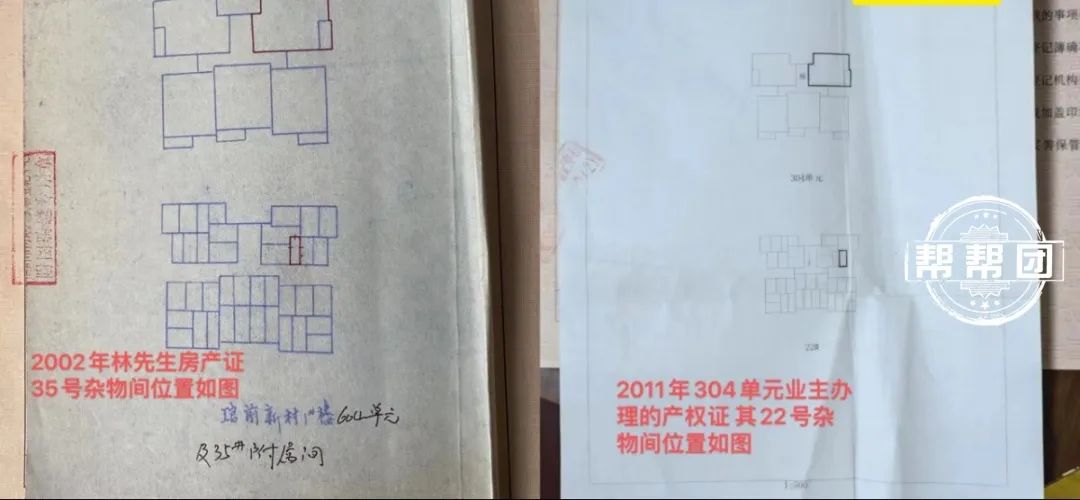 2002年林先生房产证
35号杂物间位置如图
604单元
及35#附属间
304单元
22#
2011年304单元业主办
理的产权证 其22号杂
物间位置如图
1:500
的事项
记簿确
记机构
加盖印
善保管
帮帮团